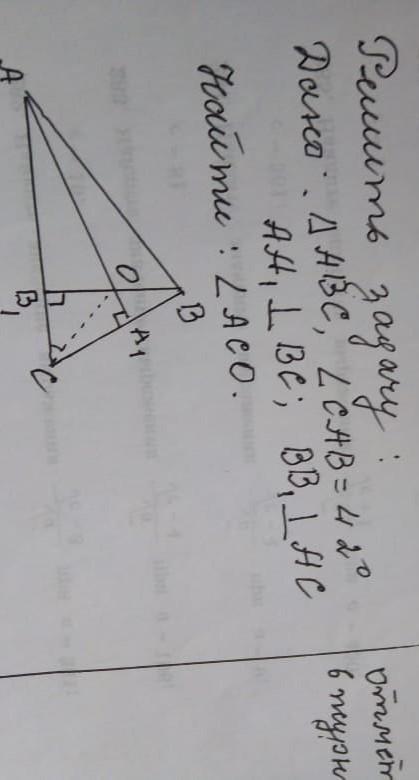 Решить задачу:
Дано: △ABC, ∠CAB = 42°
AA₁ ⊥ BC; BB₁ ⊥ AC
Найти: ∠ACO.
A
B
C
O
A1
B₁
отмет
в турн